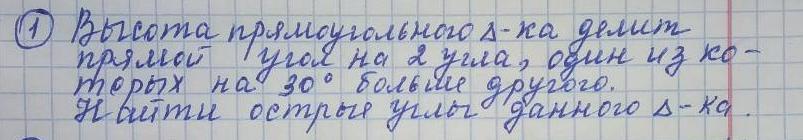 1 Высота прямоугольного Δ-ка делит
прямой угол на 2 угла, один из ко-
торых на 30° больше другого.
Найти острые углы данного Δ-ка.